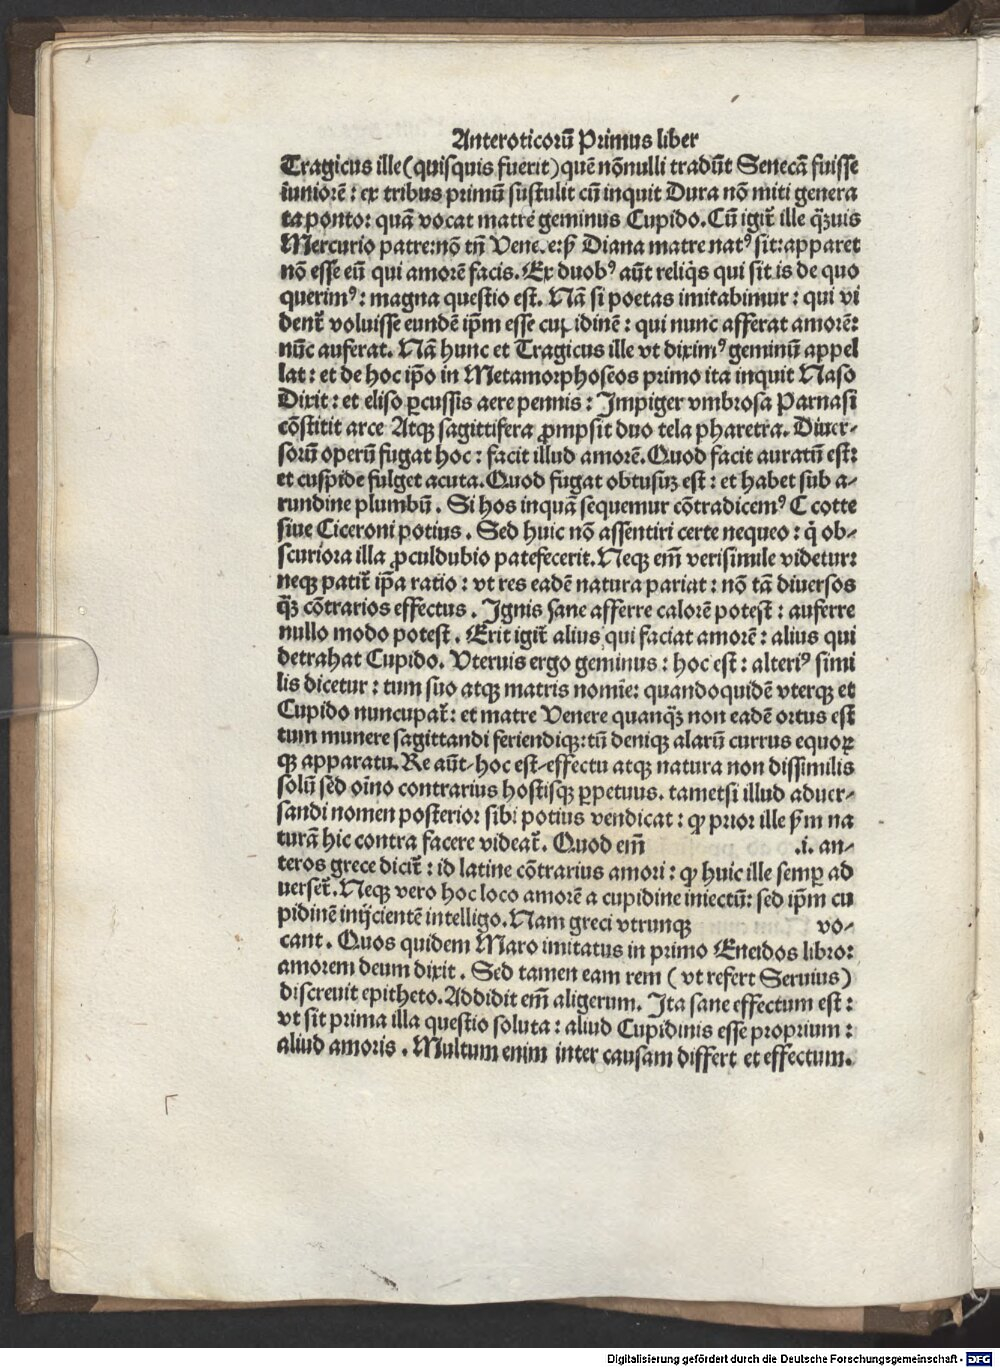 Anteroticorū Primus liber
Tragicus ille (quisquis fuerit) quē nōnulli tradūt Senecā fuisse
iuniorē : ex tribus primū sustulit cū inquit Dura nō miti genera
ta ponto: quā vocat matrē geminus Cupido. Cū igit̄ ille q̄̈uis
Mercurio patre: nō tn̄ Vene.e: s̄ꝫ Diana matre natꝰ sit: apparet
nō esse eū qui amorē facis. Ex duobꝰ aūt reliq̇s qui sit is de quo
querimꝰ : magna questio est. Nā si poetas imitabimur : qui vi
dent̄ voluisse eundē ip̄m esse cupidinē : qui nunc afferat amorē:
nūc auferat. Nā hunc et Tragicus ille vt diximꝰ geminū appel
lat : et de hoc ip̄o in Metamorphoseos primo ita inquit Naso
Dixit : et eliso ꝑcussis aere pennis : Impiger vmbrosa Parnasi
cōstitit arce Atqꝫ sagittifera ꝓmpsit duo tela pharetra. Diuer-
sorū operū fugat hoc : facit illud amorē. Quod facit auratū est:
et cuspide fulget acuta. Quod fugat obtusuꝫ est : et habet sub a-
rundine plumbū . Si hos inquā sequemur cōtradicemꝰ C cotte
siue Ciceroni potius . Sed huic nō assentiri certe nequeo : q̇ ob-
scuriora illa ꝓculdubio patefecerit. Neqꝫ em̄ verisimile videtur:
neqꝫ patit̄ ip̄a ratio : vt res eadē natura pariat : nō tā diuersos
q̄̈ꝫ cōtrarios effectus . Ignis sane afferre calorē potest : auferre
nullo modo potest . Erit igit̄ alius qui faciat amorē : alius qui
detrahat Cupido. Vteruis ergo geminus : hoc est : alteriꝰ simi
lis dicetur : tum suo atqꝫ matris nomīe: quandoquidē vterqꝫ et
Cupido nuncupat̄ : et matre Venere quanq̄̈ꝫ non eadē ortus est
tum munere sagittandi feriendiqꝫ: tū deniqꝫ alarū currus equoꝝ
qꝫ apparatu. Re aūt-hoc est-effectu atqꝫ natura non dissimilis
solū sed oīno contrarius hostisqꝫ ꝑpetuus. tametsi illud aduer-
sandi nomen posterior sibi potius vendicat : ꝙ prior ille s̄m na
turā hic contra facere videat̄. Quod em̄ .i. an-
teros grece dicit̄ : id latine cōtrarius amori : ꝙ huic ille semꝑ ad
uerset̄. Neqꝫ vero hoc loco amorē a cupidine iniectū: sed ip̄m cu
pidinē inijcientē intelligo. Nam greci vtrunqꝫ vo-
cant . Quos quidem Maro imitatus in primo Eneidos libro:
amorem deum dixit . Sed tamen eam rem ( vt refert Seruius)
discreuit epitheto. Addidit em̄ aligerum. Ita sane effectum est :
vt sit prima illa questio soluta : aliud Cupidinis esse proprium :
aliud amoris . Multum enim inter causam differt et effectum.
Digitalisierung gefördert durch die Deutsche Forschungsgemeinschaft - DFG